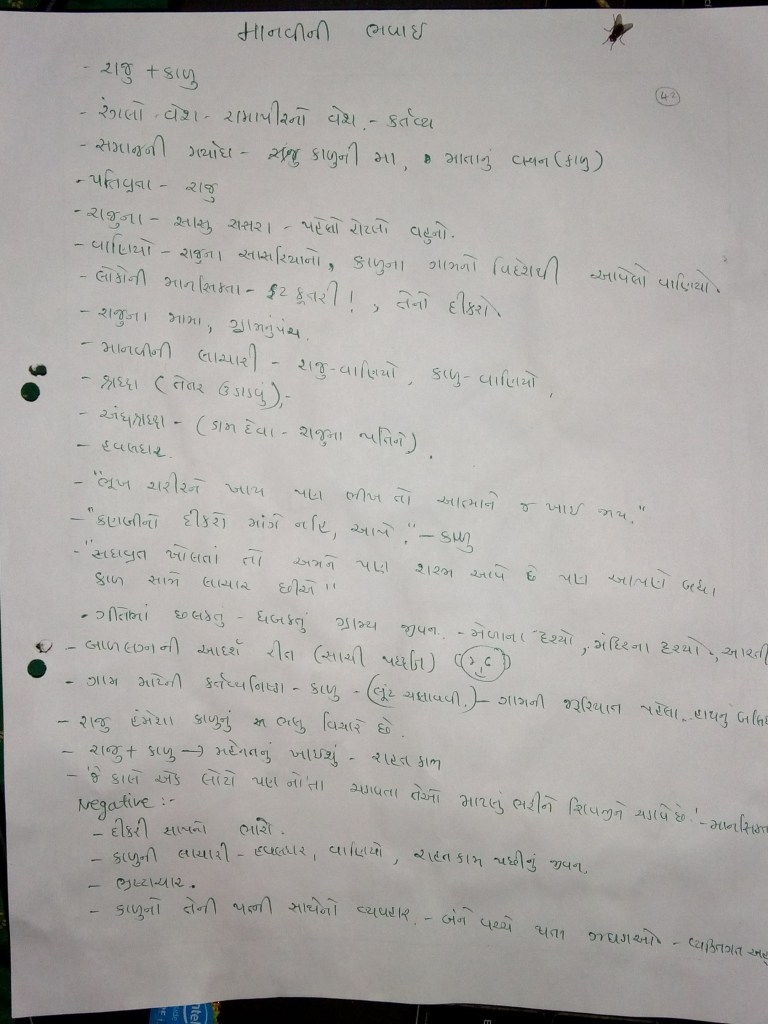 માનવીની ભવાઈ
42
- રાજુ + કાળુ
- રંગલો વેશ - રામાપીરનો વેશ. - કર્તવ્ય
- સમાજની મર્યાદા - કાળુની મા, માતાનું વચન (કાળુ)
- પતિવ્રતા - રાજુ
- રાજુના - સાસુ સસરા - પહેલો રોટલો વહુનો.
- વાણિયો - રાજુના સાસરિયાનો, કાળુના ગામનો વિદેશથી આવેલો વાણિયો
- લોકોની માનસિકતા - ફટ કૂતરી!, તેનો દીકરો
- રાજુના મામા, ગ્રામનુંપંચ.
- માનવીની લાચારી - રાજુ-વાણિયો, કાળુ-વાણિયો,
- શ્રધ્ધા (તેતર ઉડાડવું),-
- અંધશ્રધ્ધા - (ડામ દેવા - રાજુના પતિને).
- હવલદાર.
- "ભૂખ શરીરને ખાય પણ ભીખ તો આત્માને જ ખાઈ જાય."
- "કણબીનો દીકરો માંગે નહિ, આપે." - કાળુ
- "સદાવ્રત ખોલતાં તો અમને પણ શરમ આવે છે પણ આપણે બધા
કાળ સામે લાચાર છીએ"
• ગીતોમાં છલકતું - ધબકતું ગ્રામ્ય જીવન. - મેળાના દ્રશ્યો, મંદિરના દ્રશ્યો, આરતી
- બાળલગ્નની આદર્શ રીત (સાચી પધ્ધતિ)
- ગામ માટેની કર્તવ્યનિષ્ઠા - કાળુ - (લૂંટ ચલાવવી.) - ગામની જરૂરિયાત પહેલા.
- રાજુ હંમેશા કાળુનું ભલુ વિચારે છે.
- રાજુ + કાળુ → મહેનતનું ખાઈશું - રાહત કામ
- 'જે કાલે એક લોટો પણ નો'તા ચડાવતા તેઓ માટલું ભરીને શિવજીને ચડાવે છે.' -
Negative :-
- દીકરી સાપનો ભારો.
- કાળુની લાચારી - હવલદાર, વાણિયો, રાહતકામ પછીનું જીવન.
- ભ્રષ્ટાચાર.
- કાળુનો તેની પત્ની સાથેનો વ્યવહાર. - બંને વચ્ચે થતા ઝઘડાઓ - વ્યક્તિગત